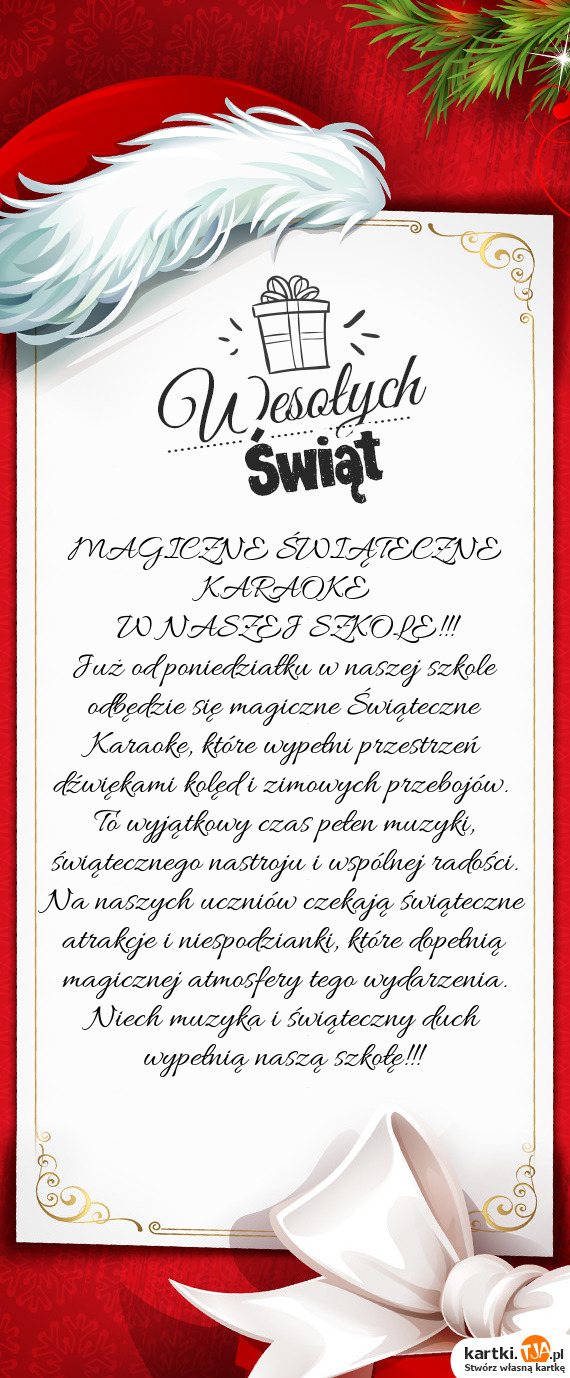 Wesołych
Świąt
MAGICZNE ŚWIĄTECZNE
KARAOKE
W NASZEJ SZKOLE!!!
Już od poniedziałku w naszej szkole
odbędzie się magiczne Świąteczne
Karaoke, które wypełni przestrzeń
dźwiękami kolęd i zimowych przebojów.
To wyjątkowy czas pełen muzyki,
świątecznego nastroju i wspólnej radości.
Na naszych uczniów czekają świąteczne
atrakcje i niespodzianki, które dopełnią
magicznej atmosfery tego wydarzenia.
Niech muzyka i świąteczny duch
wypełnią naszą szkołę!!!
kartki.TJA.pl
Stwórz własną kartkę